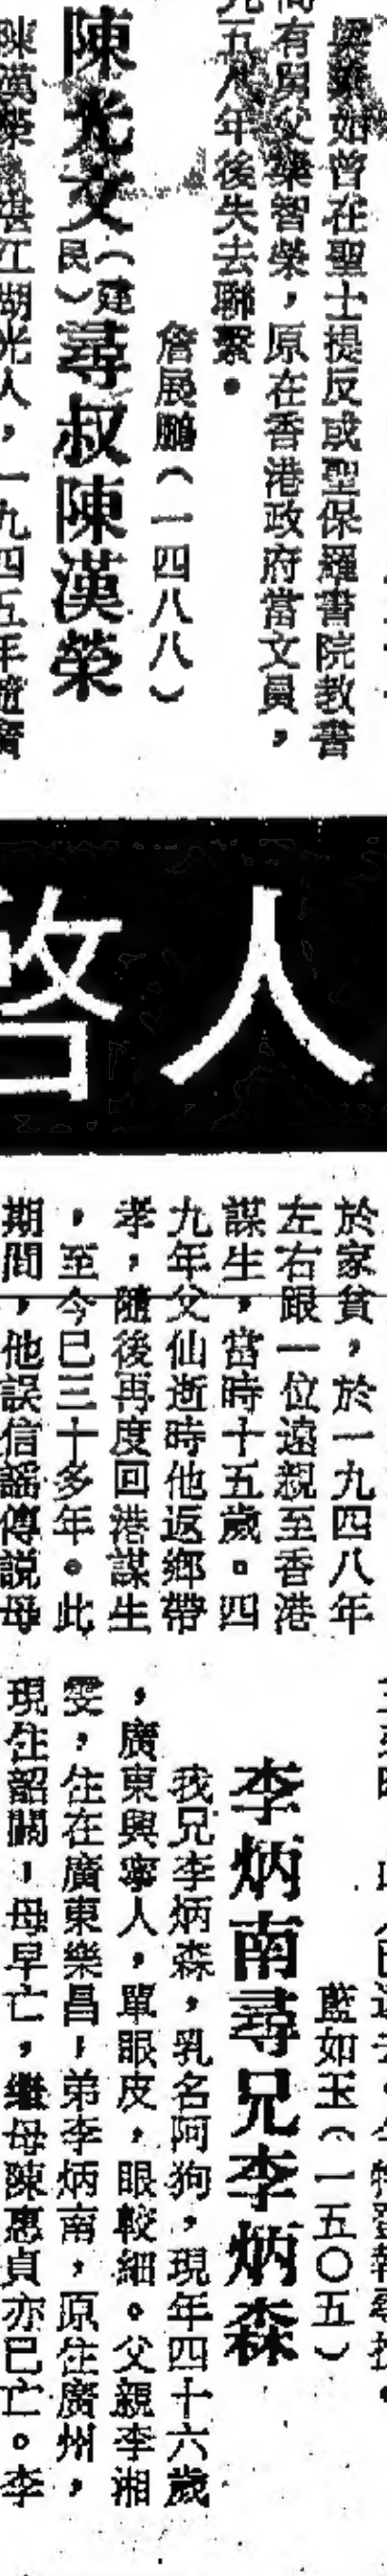 梁慕如曾在聖士提反或聖保羅書院教書
有因父樂智榮，原在香港政府當文員，
五八年後失去聯繫。
詹展鵬（一四八八）
陳光文（建民）尋叔陳漢榮
湛江湖光人，一九四五年隨廣
人
啓
於家貧，於一九四八年
左右跟一位遠親至香港
謀生，當時十五歲。四
九年父仙逝時他返鄉帶
孝，隨後再度回港謀生
，至今已三十多年。此
期間，他誤信謠傳説母
藍如玉（一五〇五）
李炳南尋兄李炳森
我兄李炳森，乳名阿狗，現年四十六歲
，廣東興寧人，單眼皮，眼較細。父親李湘
雯，住在廣東樂昌，弟李炳南，原住廣州，
現住韶關，母早亡，繼母陳惠貞亦已亡。李